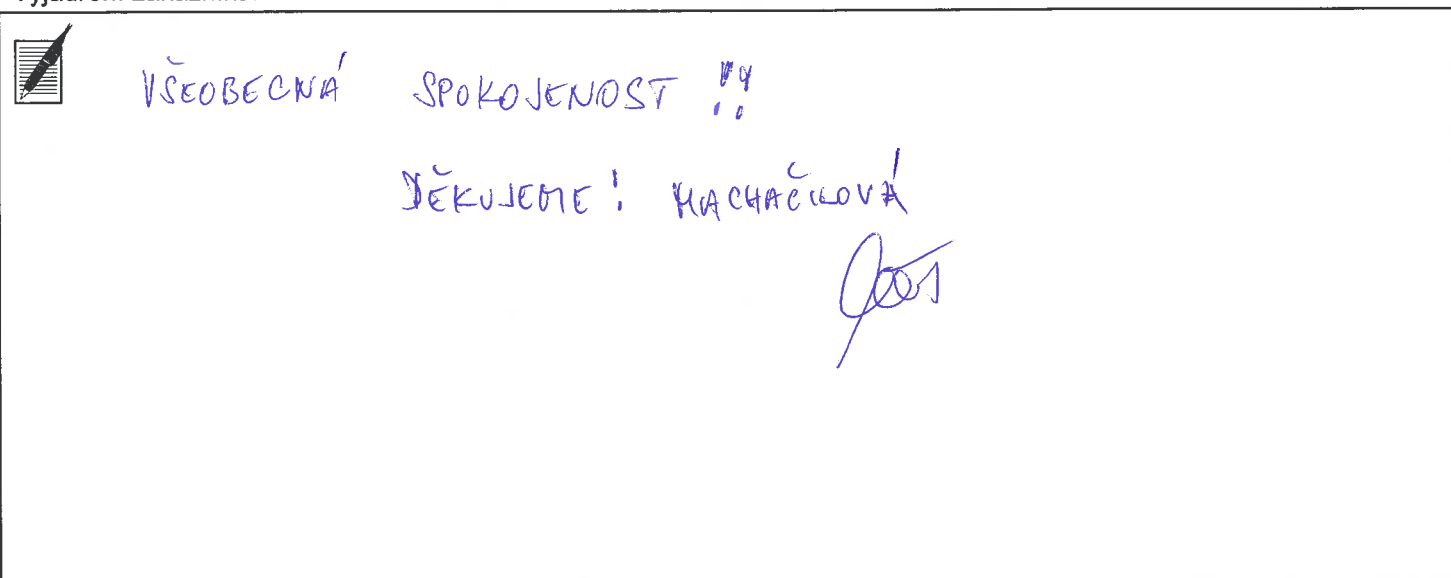 VŠEOBECNÁ SPOKOJENOST !!
DĚKUJEME! MACHAČKOVÁ